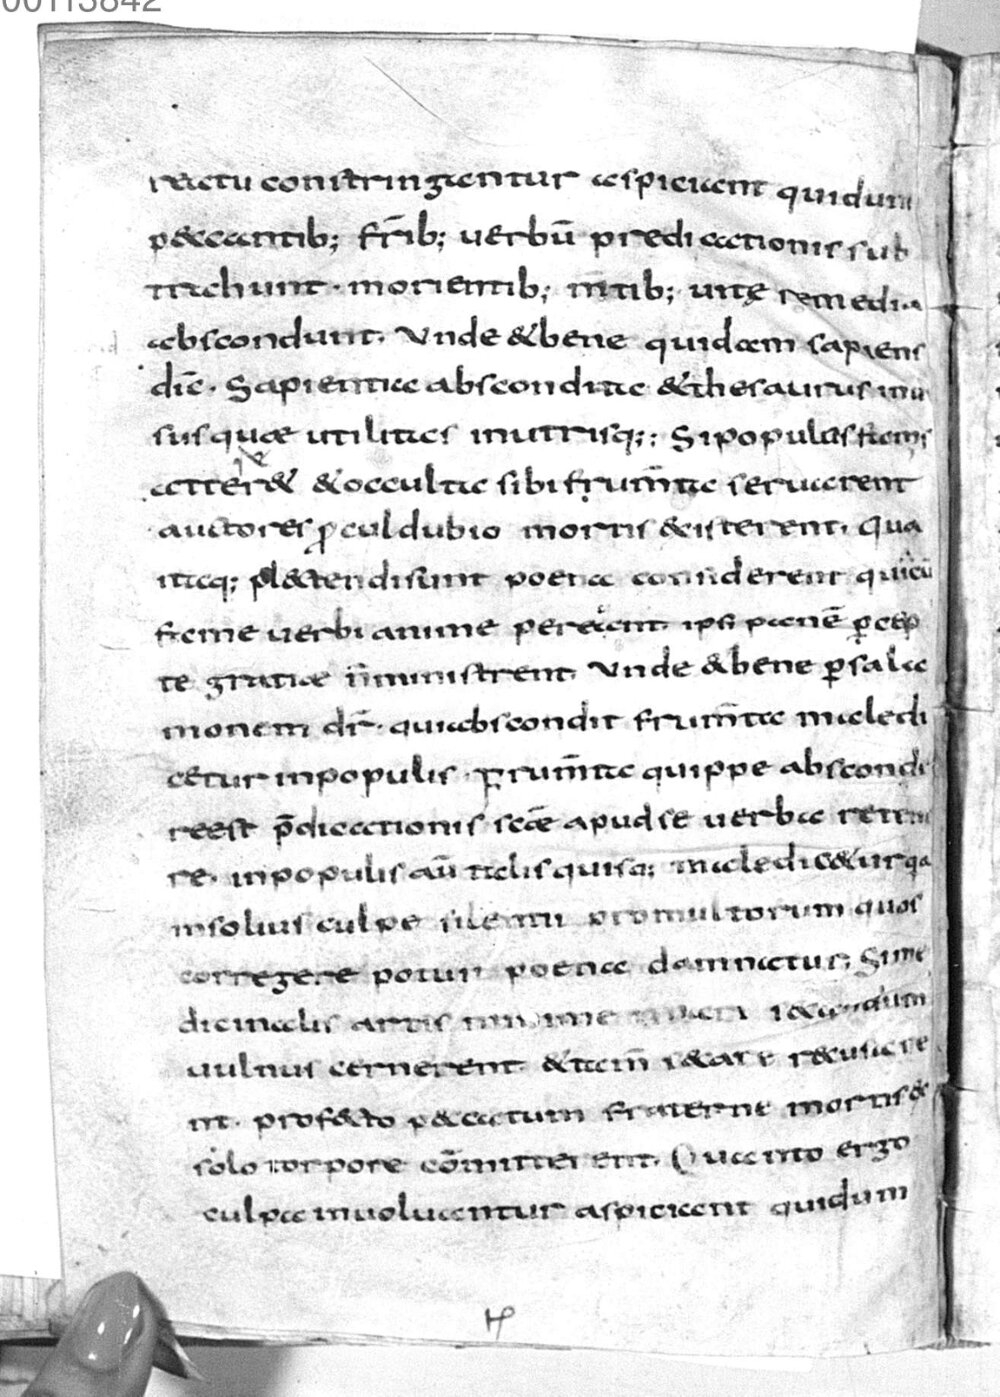 00113842
reatu constringantur aspiciant qui dum
p&ccantib; fr̄ib; uerbū predicationis sub
trahunt. morientib; m̄tib; uitę remedia
abscondunt. Vnde &bene quidam sapiens
dic̄. Sapientia abscondita &thesaurus inui
sus quae utilitas inutrisq;: Si populos fames
atter& &occulta sibi frum̄ta seruarent
auctores ꝓculdubio mortis &isterent. Qua
itaq; pl&tendi sunt poena considerent qui cū
fame uerbi anime pereant. ipsi panē ꝑcep
te gratiae n̄ ministrent. Vnde &bene ꝑ sala
monem dr̄. qui abscondit frum̄ta maledi
cetur inpopulis. Frum̄ta quippe absconde
re est p̄dicationis scāe apud se uerba retine
re. inpopulis aū talis quisq; maledic&ur qa
insolius culpe silentii pro multorum quos
corregere potuit poena damnatur; Si me
dicinalis artis minime ignari s&andum
uulnus cernerent. &tam̄ s&are recusare
nt. prof&to p&catum fraterne mortis &
solo torpore cōmitterent. Quanto ergo
culpa inuoluantur aspiciant qui dum